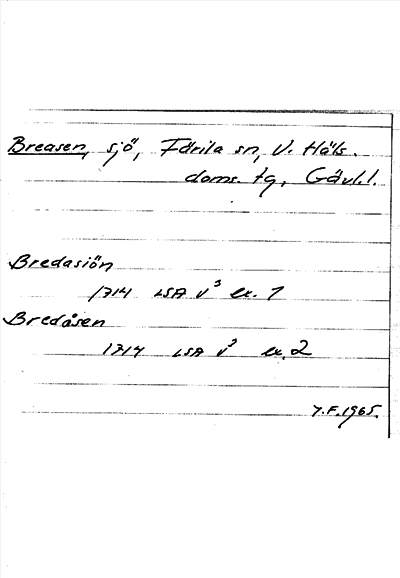 Breasen, sjö, Färila sn, V. Häls.
doms. tg, Gävl.l.
Bredasiön
1714 LSA V³ ex. 1
Bredåsen
1714 LSA V³ ex. 2
Y.F. 1965.